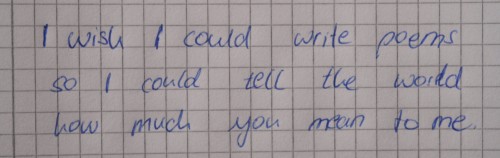 I wish I could write poems
so I could tell the world
how much you mean to me.